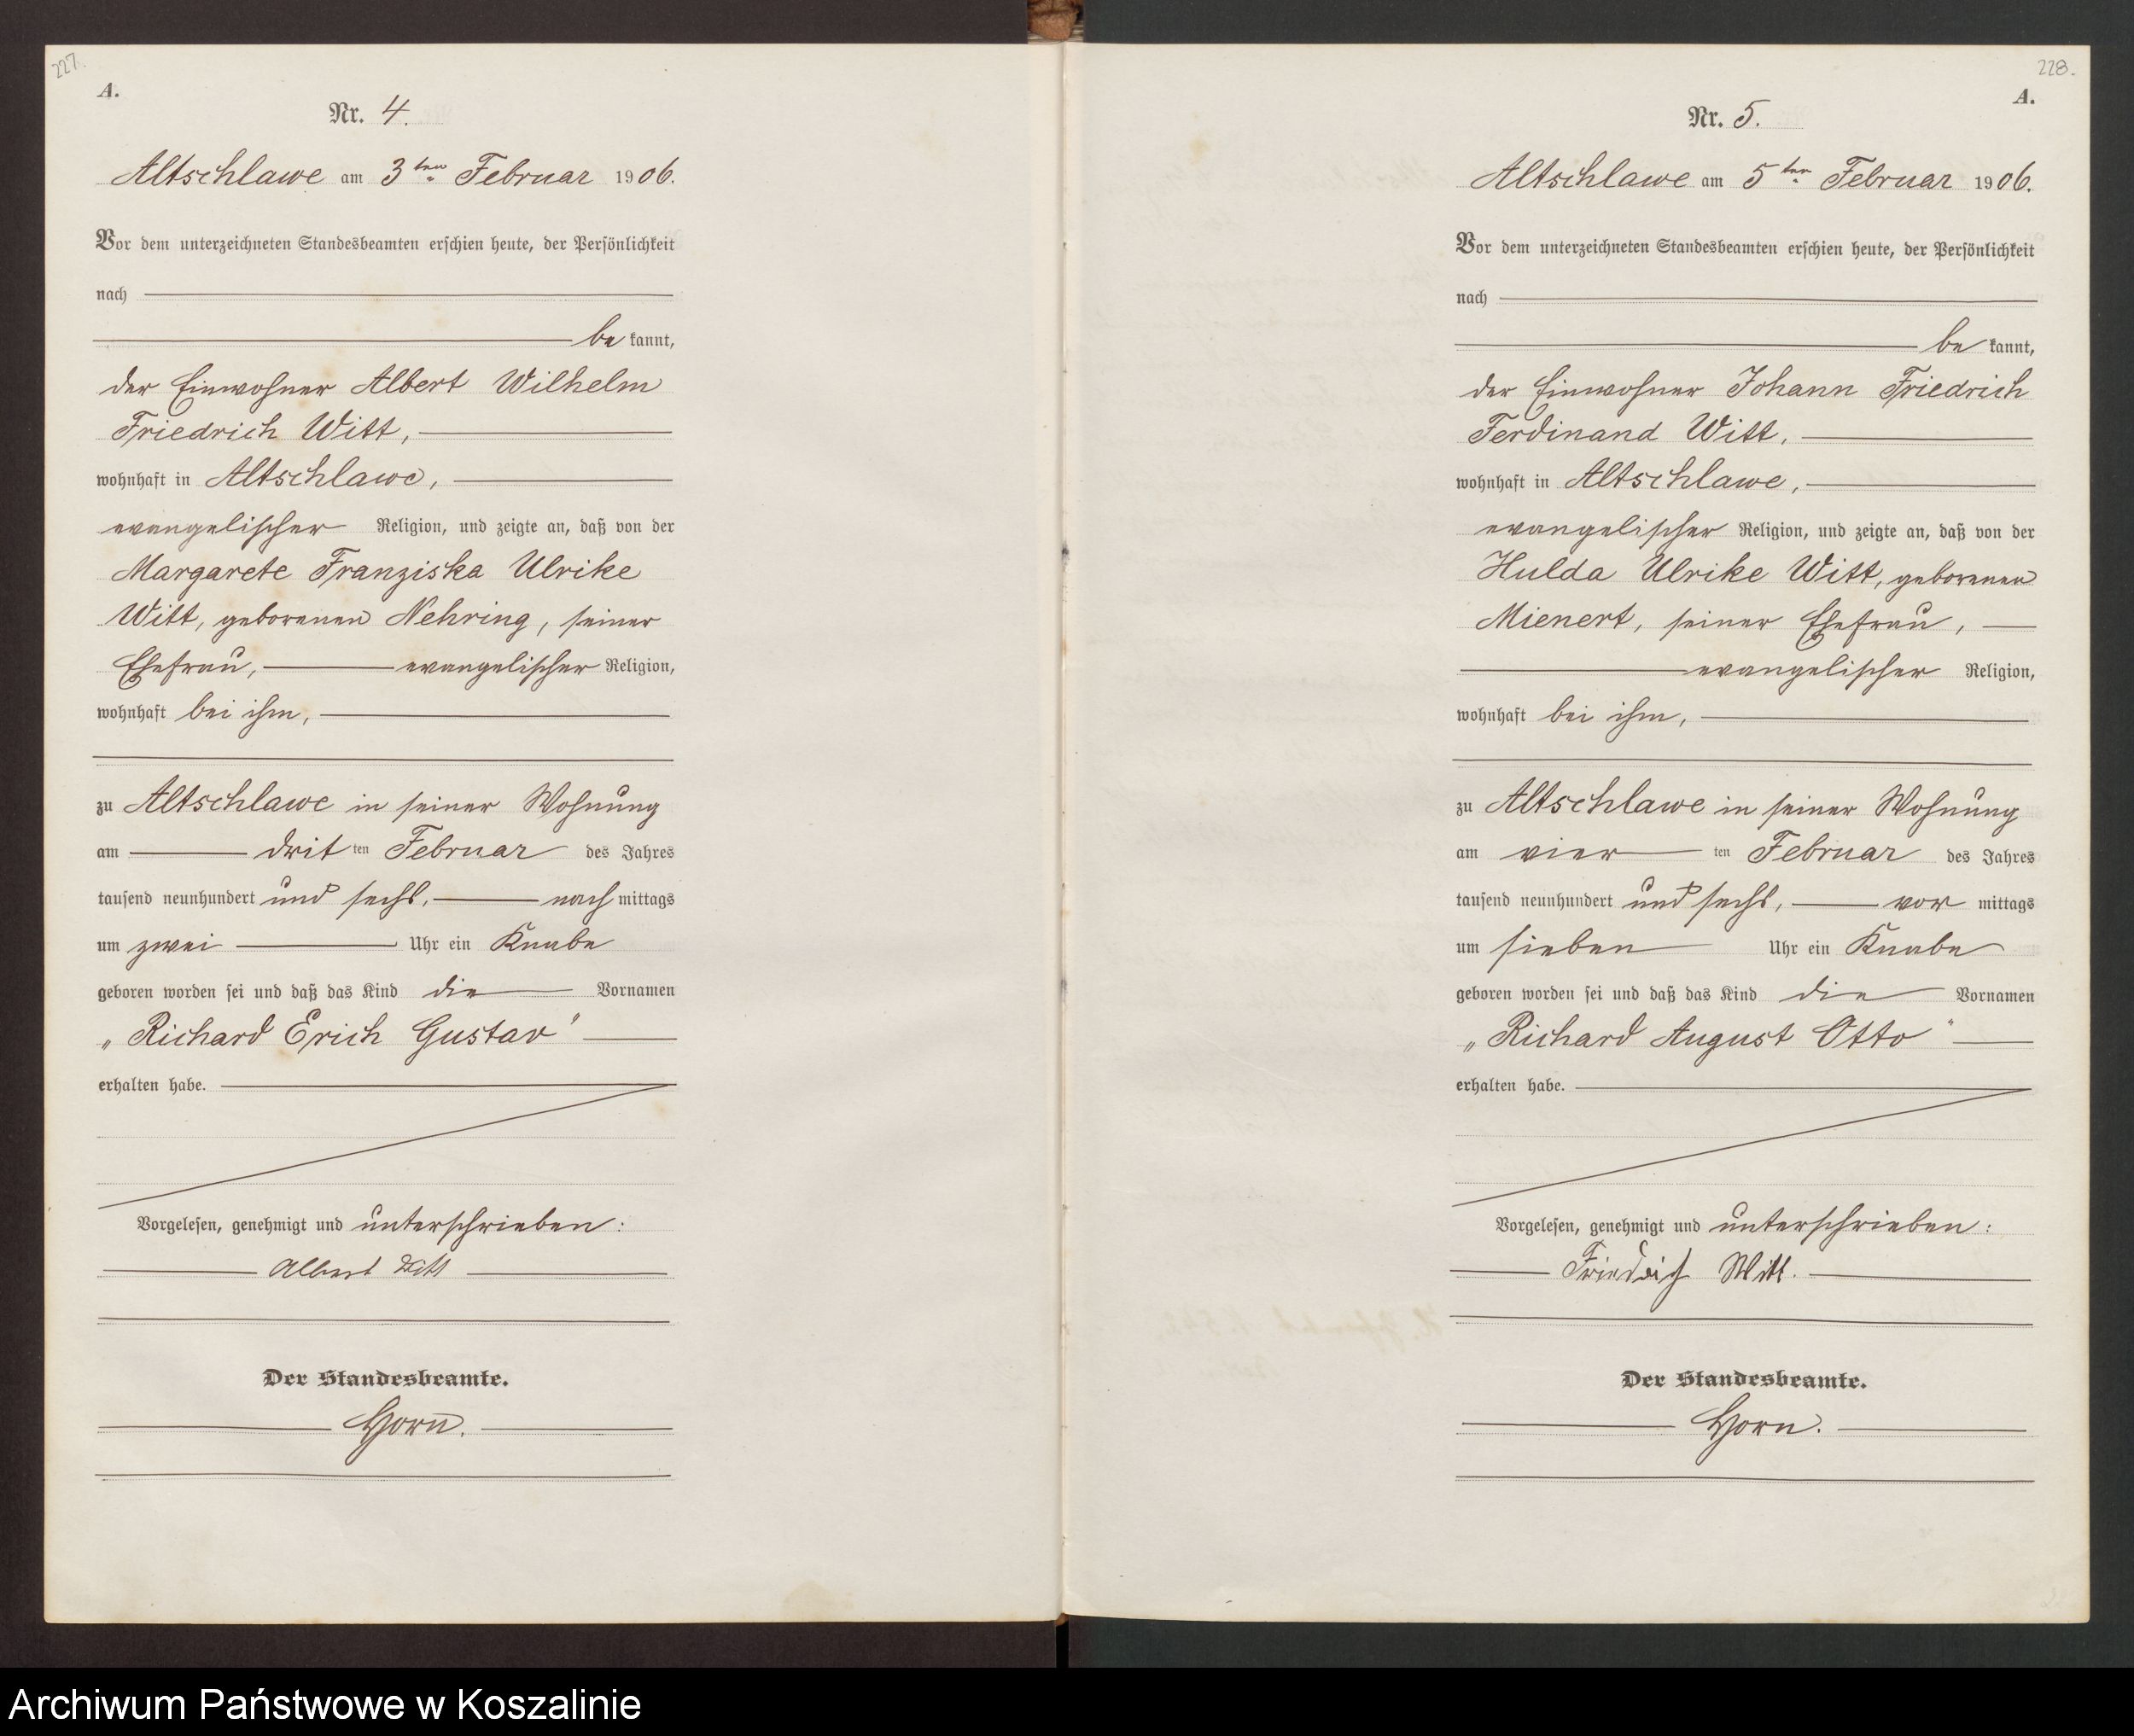 227.
A.
Nr. 4.
Altschlawe am 3ten Februar 1906.
Vor dem unterzeichneten Standesbeamten erschien heute, der Persönlichkeit
nach
be kannt,
der Einwohner Albert Wilhelm
Friedrich Witt,
wohnhaft in Altschlawe,
evangelischer Religion, und zeigte an, daß von der
Margarete Franziska Ulrike
Witt, geborenen Nehring, seiner
Ehefrau, evangelischer Religion,
wohnhaft bei ihm,
zu Altschlawe in seiner Wohnung
am drit ten Februar des Jahres
tausend neunhundert und sechs, nach mittags
um zwei Uhr ein Knabe
geboren worden sei und daß das Kind die Vornamen
„Richard Erich Gustav"
erhalten habe.
Vorgelesen, genehmigt und unterschrieben:
Albert Witt
Der Standesbeamte.
Horn.
228.
A.
Nr. 5.
Altschlawe am 5ten Februar 1906.
Vor dem unterzeichneten Standesbeamten erschien heute, der Persönlichkeit
nach
be kannt,
der Einwohner Johann Friedrich
Ferdinand Witt,
wohnhaft in Altschlawe,
evangelischer Religion, und zeigte an, daß von der
Hulda Ulrike Witt, geborenen
Mienert, seiner Ehefrau,
evangelischer Religion,
wohnhaft bei ihm,
zu Altschlawe in seiner Wohnung
am vier ten Februar des Jahres
tausend neunhundert und sechs, vor mittags
um sieben Uhr ein Knabe
geboren worden sei und daß das Kind die Vornamen
„Richard August Otto"
erhalten habe.
Vorgelesen, genehmigt und unterschrieben:
Friedrich Witt.
Der Standesbeamte.
Horn.
Archiwum Państwowe w Koszalinie